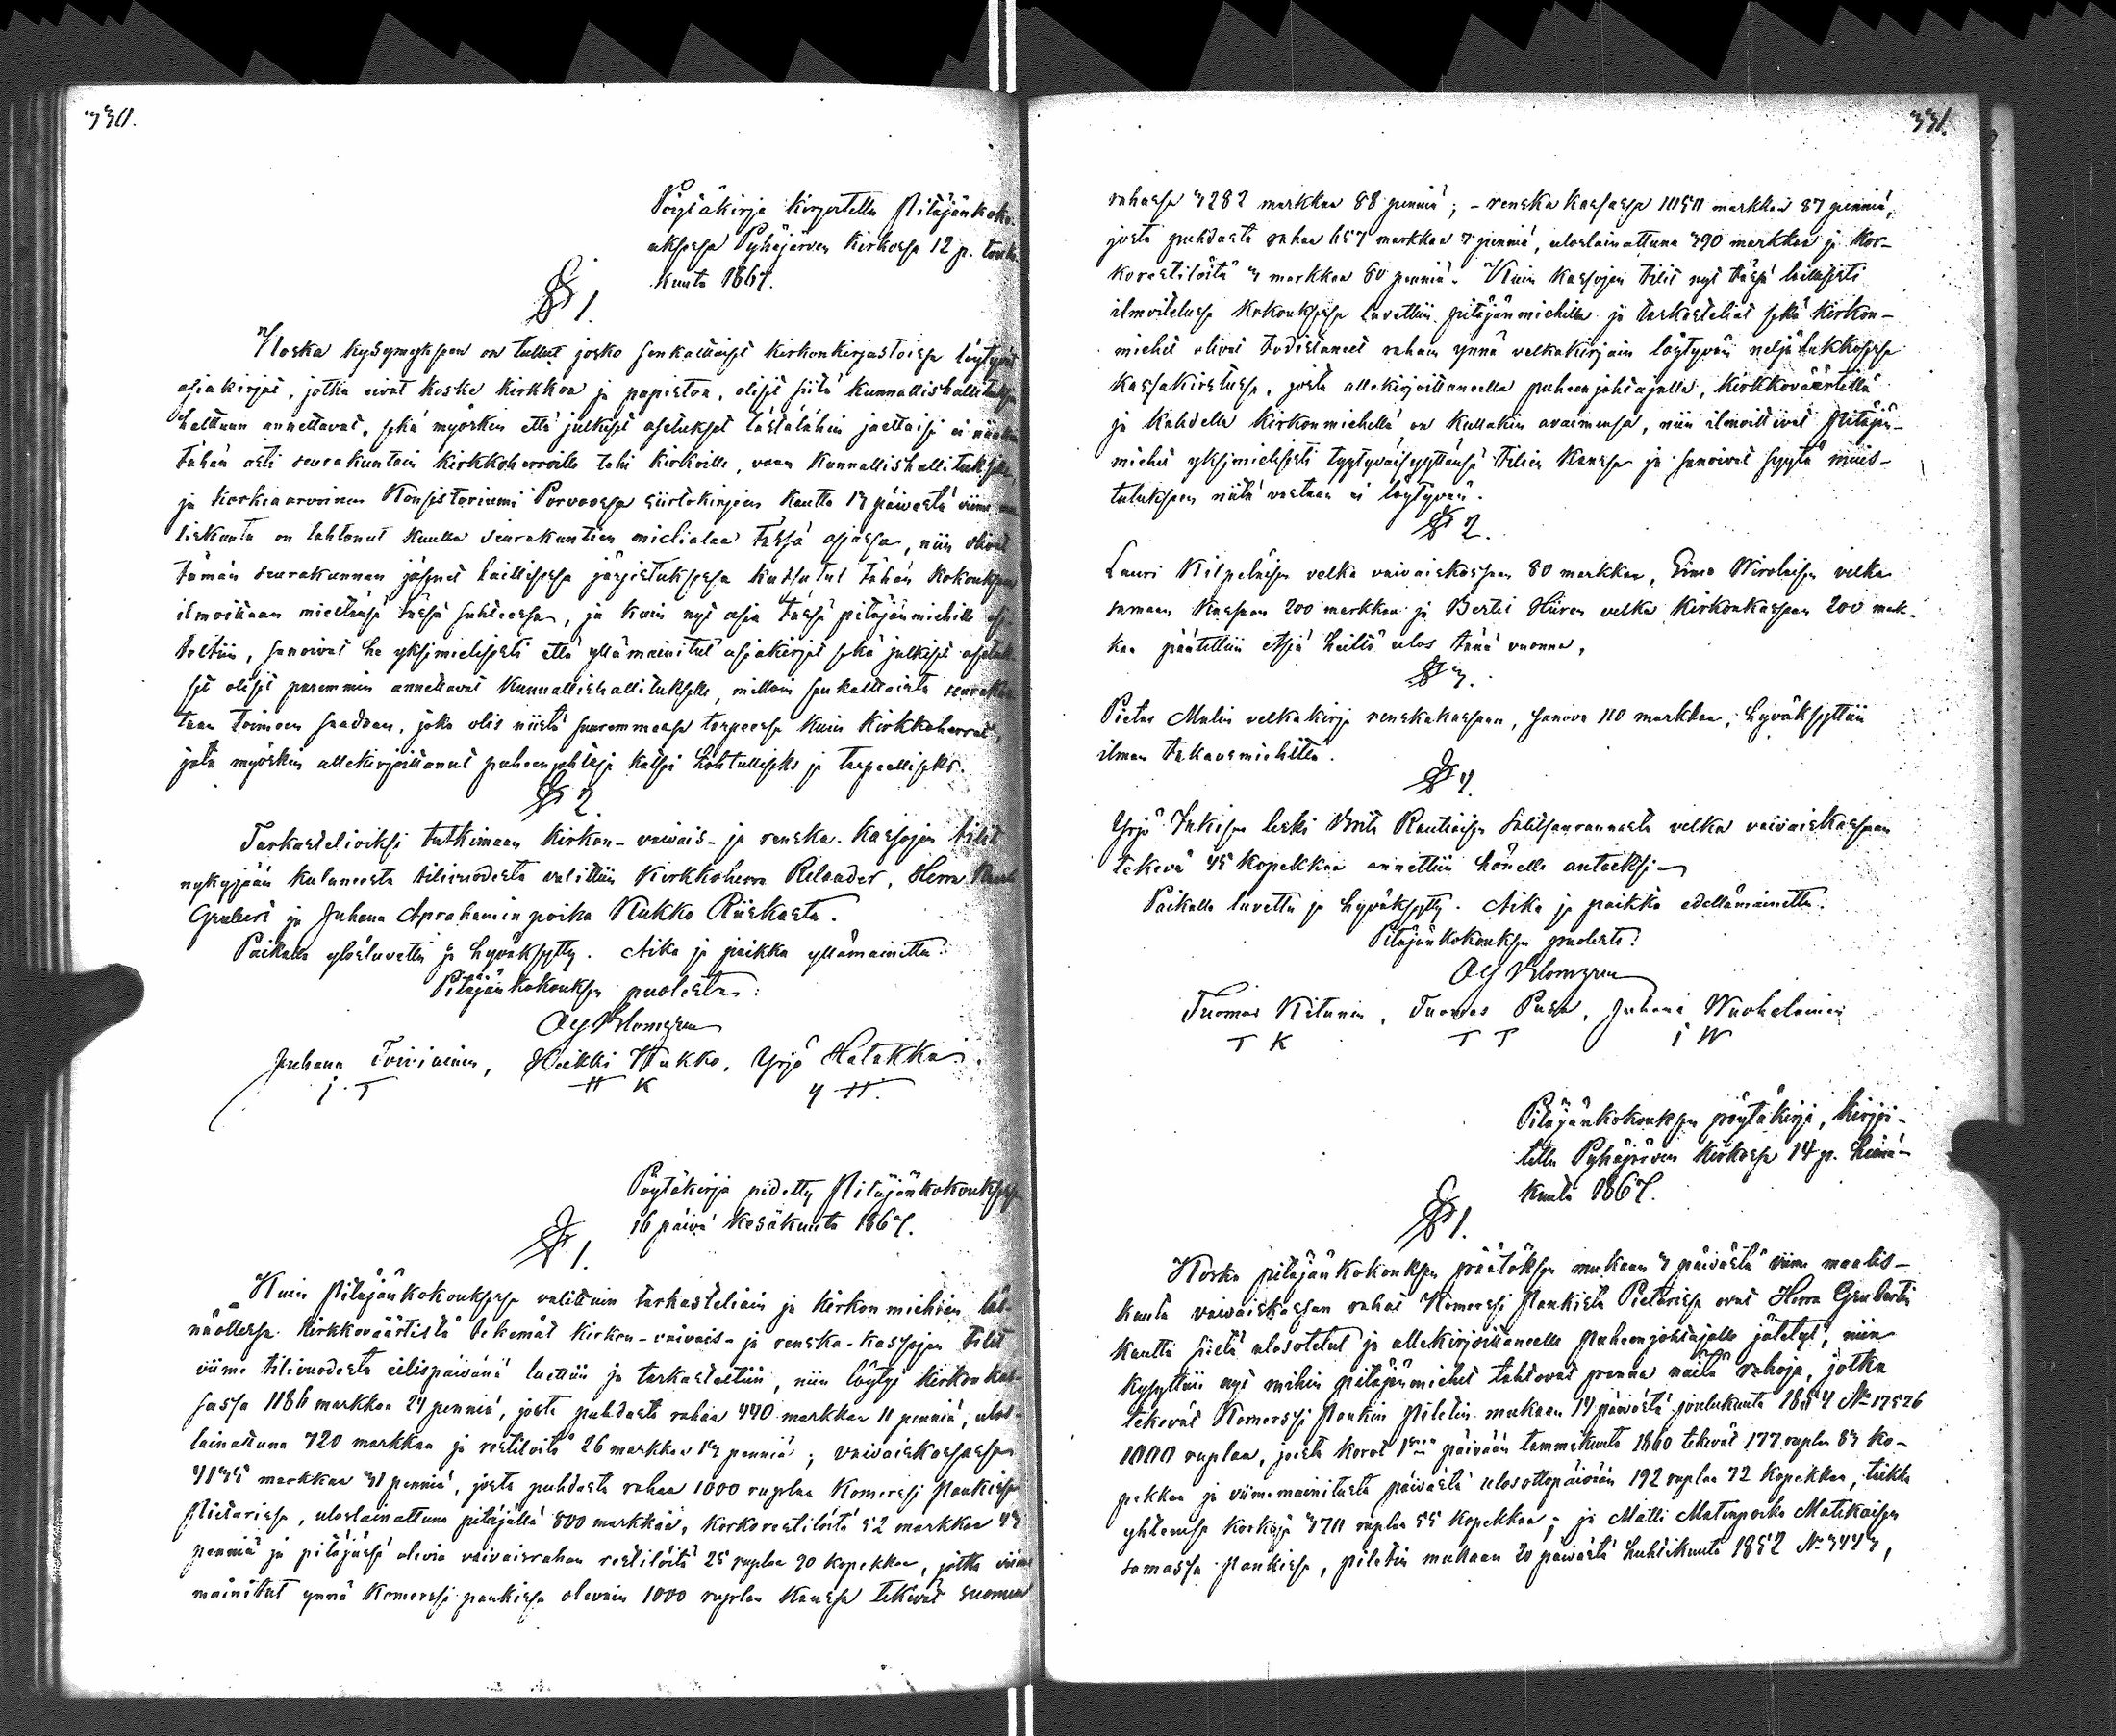 330.
Pöytäkirja kirjoitettu Pitäjänkoko-
uksessa Pyhäjärven Kirkossa 12 p. touko
kuuta 1867.
§ 1.
Koska kysymykseen on tullut josko senkaltaiset kirkonkirjastoissa löytyvät
asiakirjat, jotka eivät koske kirkkoa ja papistoa, olisit siitä Kunnallishallituksen
haltuun annettavat, sekä myöskin että julkiset asetukset tästälähin jaettaisi ei niinkuin
tähän asti seurakuntain kirkkoherroille tahi kirkoille, vaan Kunnallishallituksille,
ja korkiaarvoinen Konsistoriumi Porvoossa siirtokirjein kautta 13 päivästä viime maa
liskuuta on tahtonut kuulla seurakuntien mielialaa tässä asiassa, niin olivat
tämän seurakunnan jäsenet laillisessa järjestyksessä kutsutut tähän kokoukseen
ilmoittaan mieltänsä tässä suhteessa, ja kuin nyt asia tässä pitäjänmiehille esi
teltiin, sanoivat he yksimielisesti että yllämainitut asiakirjat sekä julkiset asetuk-
set olisit paremmin annettavat Kunnallishallitukselle, milloin senkaltaista seurakun
taan toimeen saadaan, joka olis niistä suuremmassa tarpeessa kuin Kirkkoherrat,
jota myöskin allekirjoittanut puheenjohtaja katsoi kohtulliseks ja tarpeelliseks.
§ 2
Tarkastelioiksi tutkimaan kirkon- vaivais- ja renska- kassojen tilit
nykyjään kuluneesta tilivuodesta valittiin Kirkkoherra Relander, Herra
Grubert ja Juhana Aprahaminpoika Kukko Riiskasta.
Paikalla ylösluvettu ja hyväksytty. Aika ja paikka yllämainettu.
Pitäjänkokouksen puolesta:
O G Blomgren
Juhana Toiviainen, Heikki Kukko, Yrjö Hatakka.
J T H K Y H.
Pöytäkirja pidetty Pitäjänkokouksessa
16 päivä Kesäkuuta 1867.
§ 1.
Kuin Pitäjänkokouksessa valittuin tarkasteliain ja kirkonmiehien läs-
näollessa kirkkoväärtistä tekemät kirkon- vaivais- ja renska-kassojen tilit
viime tilivuodesta eilispäivänä luettiin ja tarkasteltiin, niin löytyi kirkonkas-
sassa 1186 markkaa 24 penniä, josta puhdasta rahaa 440 markkaa 11 penniä, ulos-
lainattuna 720 markkaa ja restiloita 26 markkaa 13 penniä; vaivaiskassassa
4135 markkaa 31 penniä, josta puhdasta rahaa 1000 ruplaa Komerssi Pankissa
Pietarissa, uloslainattuna pitäjällä 800 markkaa, korkorestilöitä 52 markkaa 43
penniä ja pitäjässä olevia vaivaisrahan restilöitä 25 ruplaa 90 kopekkaa, jotka viime
mainitut ynnä Komerssi pankissa olevain 1000 ruplan kanssa tekevät suomen
331.
rahassa 3282 markkaa 88 penniä; - renska kassassa 1050 markkaa 87 penniä,
josta puhdasta rahaa 657 markkaa 7 penniä, uloslainattuna 390 markkaa ja kor-
korestilöitä 3 markkaa 80 penniä. Kuin kassojen tilit nyt tässä laillisesti
ilmoitetussa kokouksessa luvettiin pitäjänmiehille ja tarkasteliat sekä kirkon-
miehet olivat todistaneet rahain ynnä velkakirjain löytyvän neljälukkoisessa
kassakirstussa, josta allekirjoittaneella puheenjohtajalla, Kirkkoväärtillä
ja kahdella kirkonmiehellä on kullakin avaimensa, niin ilmoittivat Pitäjän-
miehet yksimielisesti tyytyväisyyttänsä tilien kanssa ja sanoivat syytä muis-
tutukseen niitä vastaan ei löytyvän.
§ 2.
Lauri Kilpeläisen velka vaivaiskassaan 80 markkaa, Simo Wirolaisen velka
samaan kassaan 200 markkaa ja Bertil Hiiren velka kirkonkassaan 200 mark-
kaa päätettiin etsiä heiltä ulos tänä vuonna.
§ 3.
Pietar Mulin velkakirja renskakassaan, sanova 110 markkaa, hyväksyttiin
ilman takausmiehittä.
§ 4.
Yrjö Inkisen leski Brita Rautiaisen Salitsanrannasta velka vaivaiskassaan
tekevä 45 kopekkaa annettiin hänelle anteeksi
Paikalla luvettu ja hyväksytty. Aika ja paikka edellämainettu.
Pitäjänkokouksen puolesta:
O G Blomgren
Tuomas Kitunen, Tuomas Pusa, Juhana Wuohelainen
T K T P J W
Pitäjänkokouksen pöytäkirja, kirjoi-
tettu Pyhäjärven Kirkossa 14 p. heinä-
kuuta 1867.
§ 1.
Koska pitäjänkokouksen päätöksen mukaan 3 päivästä viime maalis-
kuuta vaivaiskassan rahat Komerssi Pankista Pietarissa ovat Herra Grubertin
kautta sieltä ulosotetut ja allekirjoittaneelle Puheenjohtajalle jätetyt, niin
kysyttiin nyt mihin pitäjänmiehet tahtovat panna näitä rahoja, jotka
tekevät Komerssi Pankin Piletin mukaan 14 päivästä joulukuuta 1854 No 17526
1000 ruplaa, josta korot 1sen päivään tammikuuta 1860 tekevät 177 ruplaa 83 ko-
pekkaa ja viimemainitusta päivästä ulosottopäivään 192 ruplaa 72 kopekkaa, taikka
yhteensä korkoja 370 ruplaa 55 kopekkaa; ja Matti Matinpoika Matikaisen
samassa Pankissa, piletin mukaan 20 päivästä huhtikuuta 1852 No 3443,